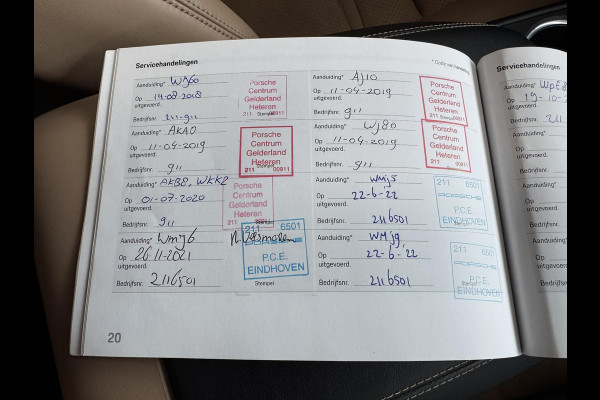 Servicehandelingen
Aanduiding* WJ60
Op 14-08-2018
uitgevoerd.
Bedrijfsnr. 211-911
Porsche
Centrum
Gelderland
Heteren
211 Stempel 00911
Aanduiding* AKA0
Op 11-04-2019
uitgevoerd.
Bedrijfsnr. 911
Porsche
Centrum
Gelderland
Heteren
211 00911
Aanduiding* AKB8, WKK2
Op 01-07-2020
uitgevoerd.
Bedrijfsnr. 911
Porsche
Centrum
Gelderland
Heteren
Aanduiding* WMJ6
Op 26-11-2021
uitgevoerd.
Bedrijfsnr. 2116501
211 6501
P.C.E.
EINDHOVEN
Stempel
20
* Code van handeling
Aanduiding* AJ10
Op 11-04-2019
uitgevoerd.
Bedrijfsnr. 911
Porsche
Centrum
Gelderland
Heteren
211 Stempel 00911
Aanduiding* WJ80
Op 11-04-2019
uitgevoerd.
Bedrijfsnr. 911
Porsche
Centrum
Gelderland
Heteren
211 00911
Aanduiding* WMJ5
Op 22-6-22
uitgevoerd.
Bedrijfsnr. 2116501
211 6501
PORSCHE
P.C.E.
EINDHOVEN
Aanduiding* WMJ9
Op 22-6-22
uitgevoerd.
Bedrijfsnr. 2116501
211 6501
PORSCHE
P.C.E.
EINDHOVEN
Stempel
Servicehandelingen
Aanduiding*
Op 19-10-2
uitgevoerd.
Bedrijfsnr. 211
Aanduiding*
Op
uitgevoerd.
Bedrijfsnr.
Aanduiding*
Op
uitgevoerd.
Bedrijfsnr.
Aanduiding*
Op
uitgevoerd.
Bedrijfsnr.